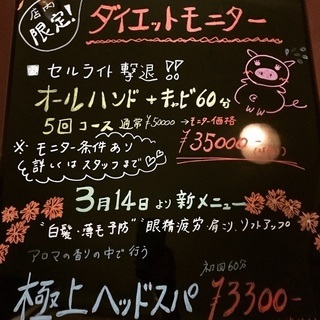 店内
限定!
ダイエットモニター
セルライト撃退!!
オールハンド+キャビ60分
5回コース 通常¥50000→モニター価格
¥35000
※モニター条件あり
詳しくはスタッフまで
3月14日より新メニュー
"白髪・薄毛予防" "眼精疲労、肩こり、リフトアップ
アロマの香りの中で行う
初回60分
極上ヘッドスパ ¥3300-